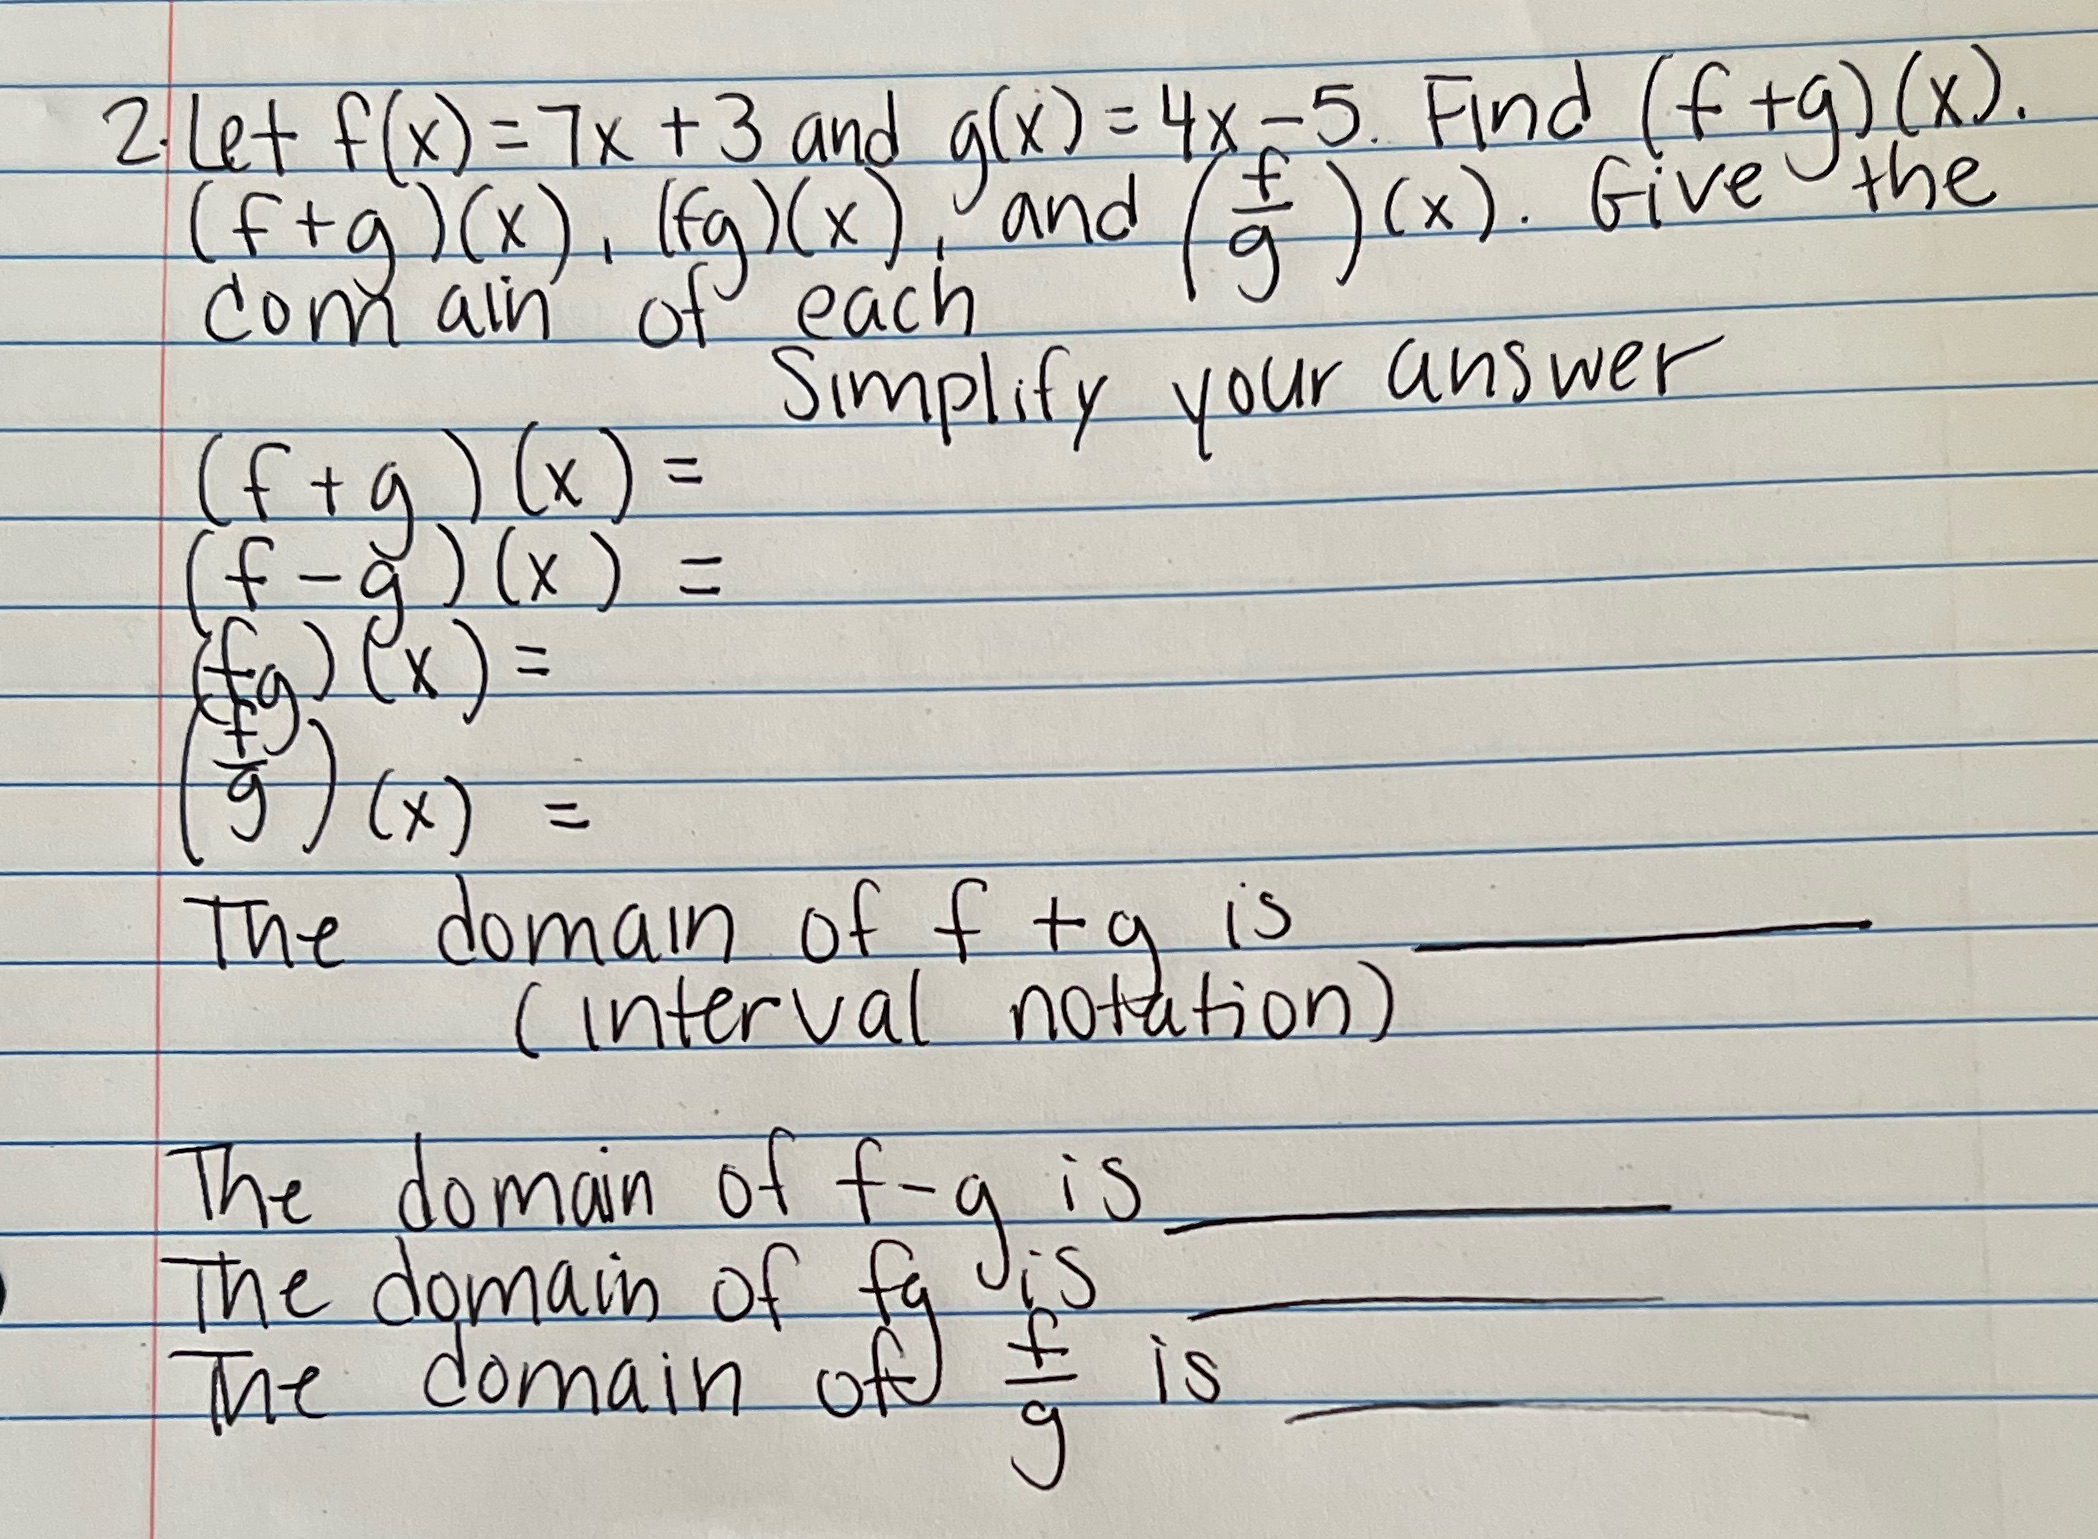 2. Let f(x) = 7x + 3 and g(x) = 4x - 5. Find (f + g)(x).
(f + g)(x), (fg)(x), and (f/g)(x). Give the
domain of each
Simplify your answer
(f + g)(x) =
(f - g)(x) =
(fg)(x) =
(f/g)(x) =
The domain of f + g is ____
(interval notation)
The domain of f - g is ____
The domain of fg is ____
The domain of f/g is ____